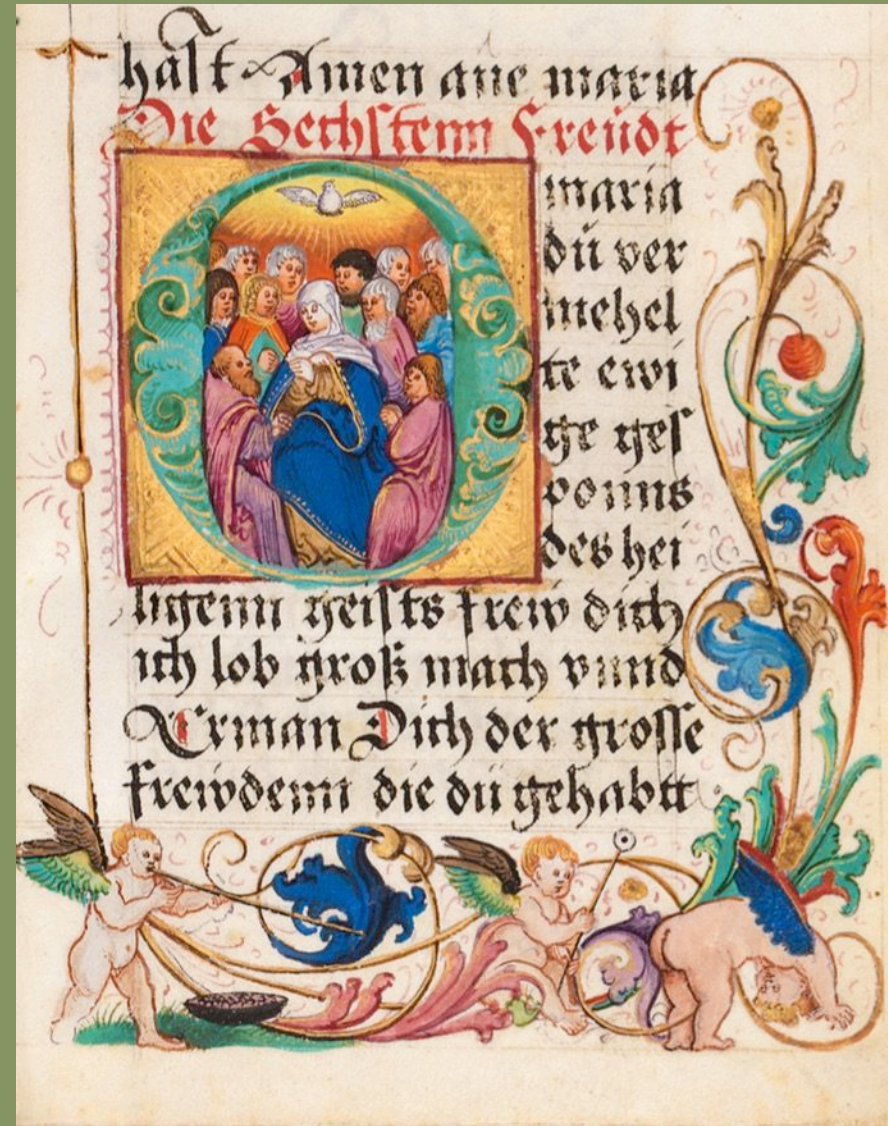 hast Amen aue maria
Die Sechstenn Freüdt
O maria
dü ver
mehel
te ewi
ge ges
ponns
des hei
ligenn geists frew dich
ich lob groß mach vnnd
Erman Dich der grosse
frewdenn die dü gehabtt